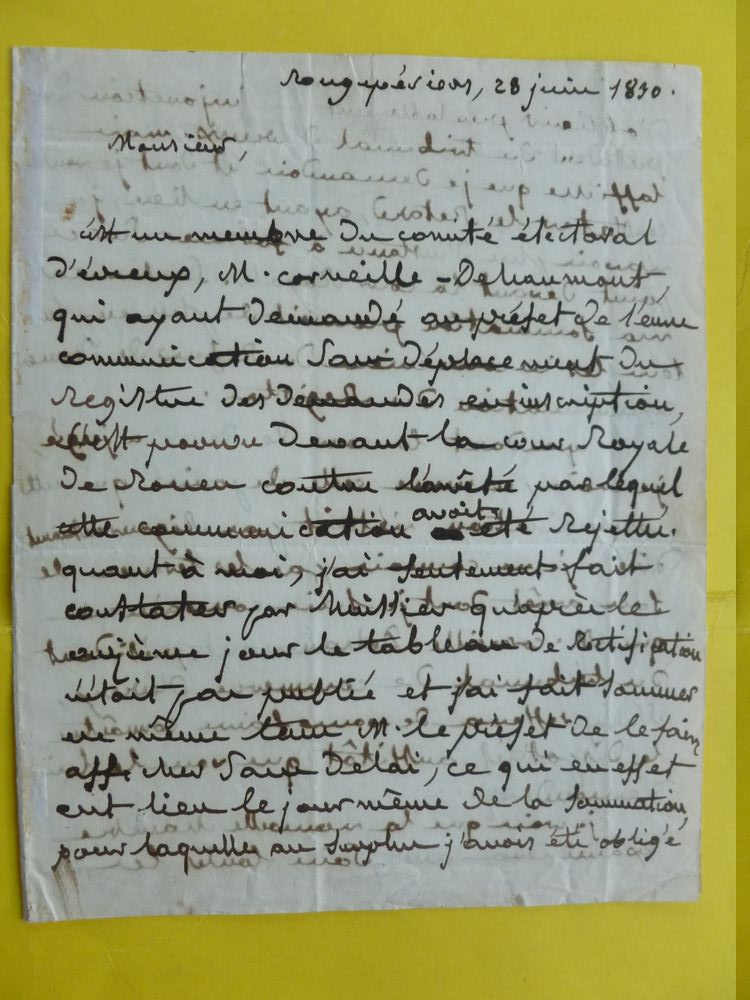 Rougepériers, 28 juin 1830.
Monsieur,
c'est un membre du comité électoral
d'évreux, M. corneille - Dehaumont,
qui ayant demandé au préfet de l'eure
communication sans déplacement du
registre des demandes en inscription,
s'est pourvu devant la cour Royale
de Rouen contre l'arrêté par lequel
cette communication avait été rejettée.
quant à moi, j'ai seulement fait
constater par huissier qu'après le
onzième jour le tableau de rectification
n'était pas publié et j'ai fait sommer
en même tems M. le préfet de le faire
afficher sans délai, ce qui en effet
eut lieu le jour même de la sommation,
pour laquelle au surplus j'avois été obligé